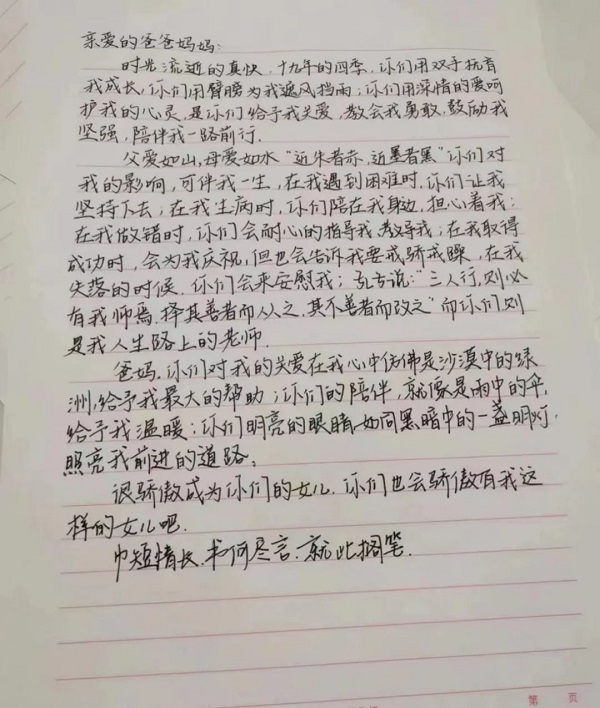 亲爱的爸爸妈妈:
时光流逝的真快,十九年的四季,你们用双手抚育
我成长,你们用臂膀为我遮风挡雨;你们用深情的爱呵
护我的心灵,是你们给予我关爱,教会我勇敢,鼓励我
坚强,陪伴我一路前行.
父爱如山,母爱如水"近朱者赤,近墨者黑"你们对
我的影响,可伴我一生,在我遇到困难时,你们让我
坚持下去;在我生病时,你们陪在我身边,担心着我;
在我做错时,你们会耐心的指导我,教导我;在我取得
成功时,会为我庆祝,但也会告诉我要戒骄戒躁,在我
失落的时候,你们会来安慰我;孔子说:"三人行,则必
有我师焉,择其善者而从之,其不善者而改之"而你们则
是我人生路上的老师.
爸妈,你们对我的关爱在我心中仿佛是沙漠中的绿
洲,给予我最大的帮助;你们的陪伴,就像是雨中的伞,
给予我温暖;你们明亮的眼睛,如同黑暗中的一盏明灯,
照亮我前进的道路;
很骄傲成为你们的女儿,你们也会骄傲有我这
样的女儿吧.
巾短情长,书何尽言,就此搁笔.
第 页